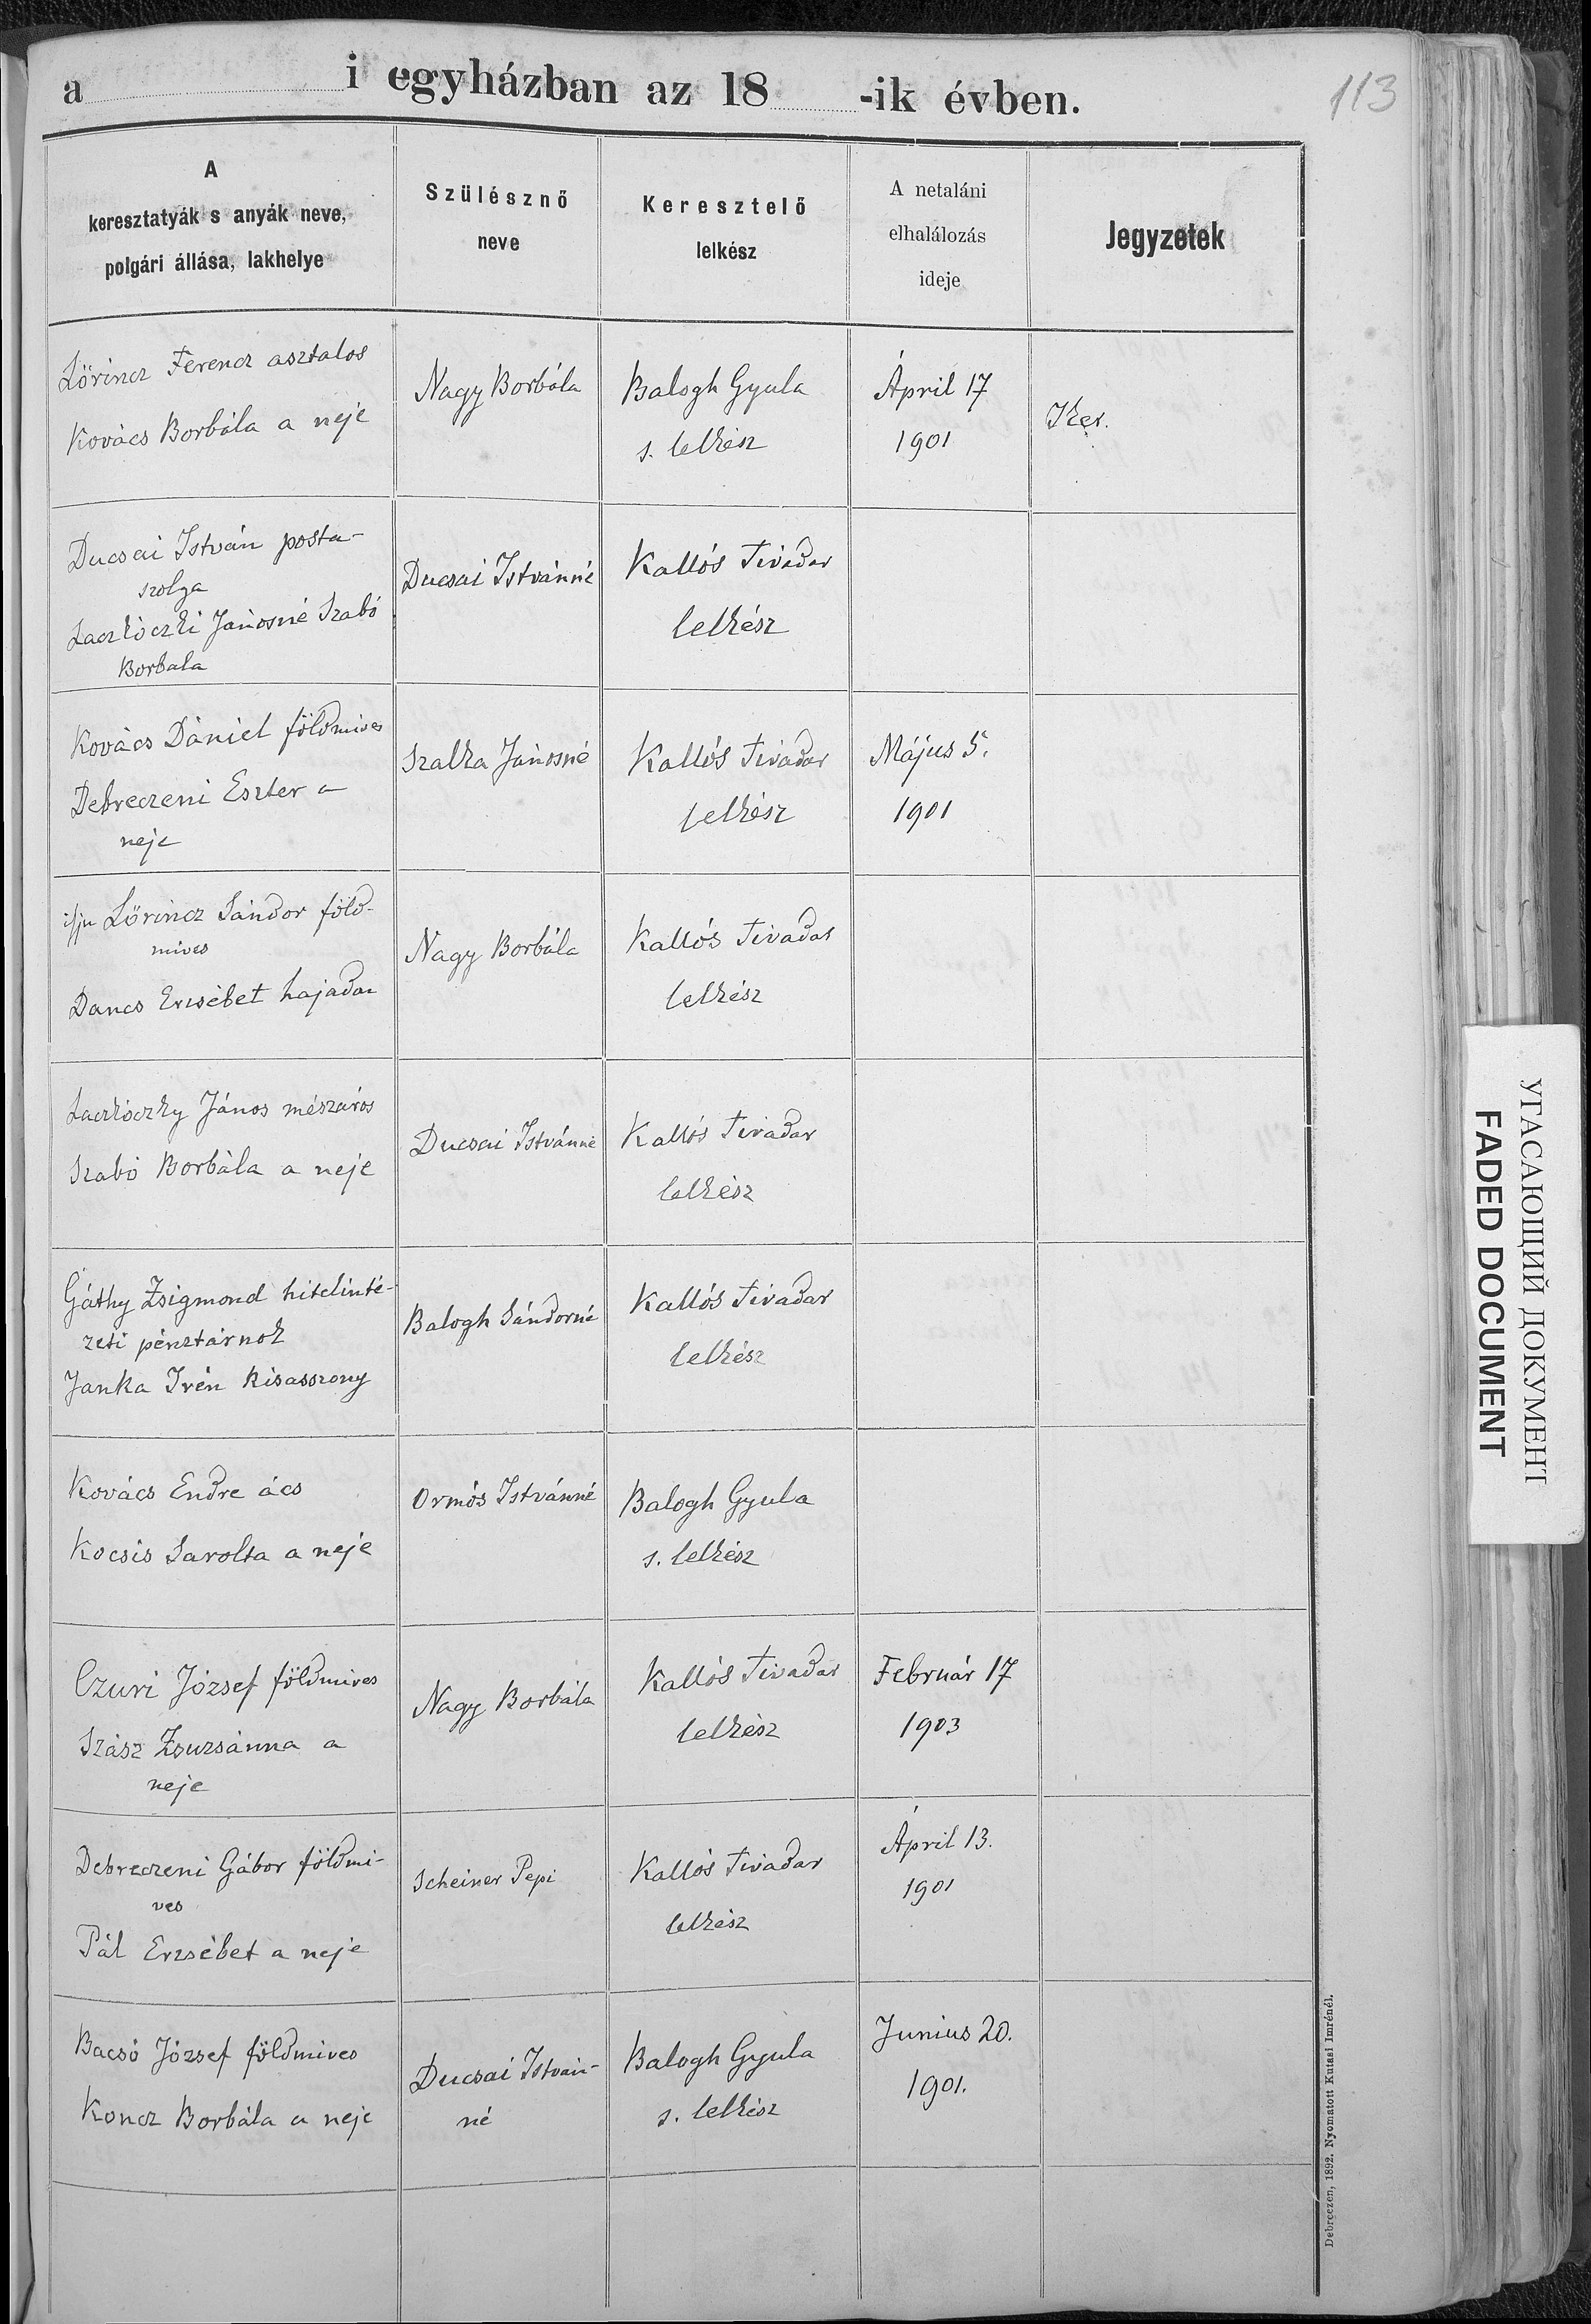 a i egyházban az 18 -ik évben.
113
A
keresztatyák s anyák neve,
polgári állása, lakhelye
Szülésznő
neve
Keresztelő
lelkész
A netaláni
elhalálozás
ideje
Jegyzetek
Lőrincz Ferencz asztalos
Kovács Borbála a neje
Nagy Borbála
Balogh Gyula
s. lelkész
Ápril 17
1901
Iker.
Ducsai István posta-
szolga
Laczkóczki Jánosné Szabó
Borbala
Ducsai Istvánné
Kallós Tivadar
lelkész
Kovács Dániel földmives
Debreczeni Eszter a
neje
Szalka Jánosné
Kallós Tivadar
lelkész
Május 5.
1901
ifju Lőrincz Sándor föld-
mives
Dancs Erzsébet hajadon
Nagy Borbála
Kallós Tivadar
lelkész
Laczkóczky János mészáros
Szabó Borbála a neje
Ducsai Istvánné
Kallós Tivadar
lelkész
Gáthy Zsigmond hitelinté-
zeti pénztárnok
Janka Irén kisasszony
Balogh Sándorné
Kallós Tivadar
lelkész
Kovács Endre ács
Kocsis Sarolta a neje
Ormós Istvánné
Balogh Gyula
s. lelkész
Czuri József földmives
Szász Zsuzsánna a
neje
Nagy Borbála
Kallós Tivadar
lelkész
Február 17
1903
Debreczeni Gábor földmi-
ves
Pál Erzsébet a neje
Scheiner Pepi
Kallós Tivadar
lelkész
Ápril 13.
1901
Bacsó József földmives
Koncz Borbála a neje
Ducsai István-
né
Balogh Gyula
s. lelkész
Junius 20.
1901.
Debreczen, 1892. Nyomatott Kutasi Imrénél.
УГАСАЮЩИЙ ДОКУМЕНТ
FADED DOCUMENT